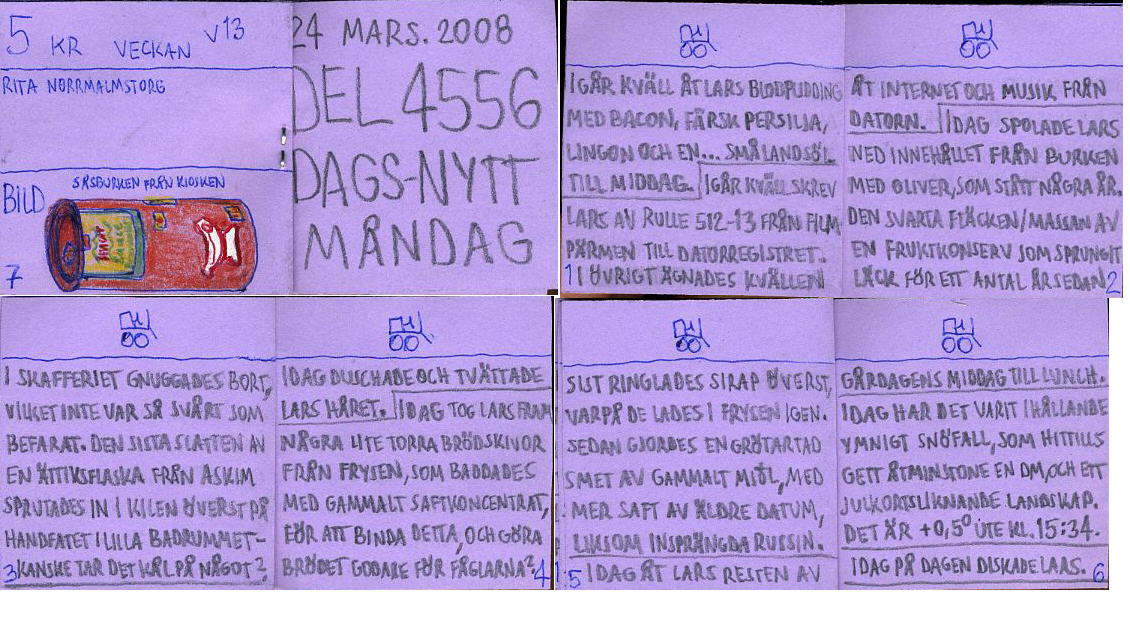 5 KR VECKAN V13
RITA NORRMALMSTORG
BILD
SÅSBURKEN FRÅN KIOSKEN
7
24 MARS. 2008
DEL 4556
DAGS-NYTT
MÅNDAG
IGÅR KVÄLL ÅT LARS BLODPUDDING
MED BACON, FÄRSK PERSILJA,
LINGON OCH EN... SMÅLANDSÖL
TILL MIDDAG. IGÅR KVÄLL SKREV
LARS AV RULLE 512-13 FRÅN FILM
PÄRMEN TILL DATORREGISTRET.
I ÖVRIGT ÄGNADES KVÄLLEN
1
ÅT INTERNET OCH MUSIK FRÅN
DATORN. IDAG SPOLADE LARS
NED INNEHÅLLET FRÅN BURKEN
MED OLIVER, SOM STÅTT NÅGRA ÅR.
DEN SVARTA FLÄCKEN/MASSAN AV
EN FRUKTKONSERV SOM SPRUNGIT
LÄCK FÖR ETT ANTAL ÅR SEDAN
2
I SKAFFERIET GNUGGADES BORT,
VILKET INTE VAR SÅ SVÅRT SOM
BEFARAT. DEN SISTA SLATTEN AV
EN ÄTTIKSFLASKA FRÅN ASKIM
SPRUTADES IN I KILEN ÖVERST PÅ
HANDFATET I LILLA BADRUMMET-
KANSKE TAR DET KÅL PÅ NÅGOT?
3
IDAG DUSCHADE OCH TVÄTTADE
LARS HÅRET. IDAG TOG LARS FRAM
NÅGRA LITE TORRA BRÖDSKIVOR
FRÅN FRYSEN, SOM BADDADES
MED GAMMALT SAFTKONCENTRAT,
FÖR ATT BINDA DETTA, OCH GÖRA
BRÖDET GODARE FÖR FÅGLARNA?
4
SIST RINGLADES SIRAP ÖVERST,
VARPÅ DE LADES I FRYSEN IGEN.
SEDAN GJORDES EN GRÖTARTAD
SMET AV GAMMALT MJÖL, MED
MER SAFT AV ÄLDRE DATUM,
LIKSOM INSPRÄNGDA RUSSIN.
IDAG ÅT LARS RESTEN AV
5
GÅRDAGENS MIDDAG TILL LUNCH.
IDAG HAR DET VARIT IHÅLLANDE
YMNIGT SNÖFALL, SOM HITTILLS
GETT ÅTMINSTONE EN DM, OCH ETT
JULKORTSLIKNANDE LANDSKAP.
DET ÄR +0,5° UTE KL. 15:34.
IDAG PÅ DAGEN DISKADE LARS.
6